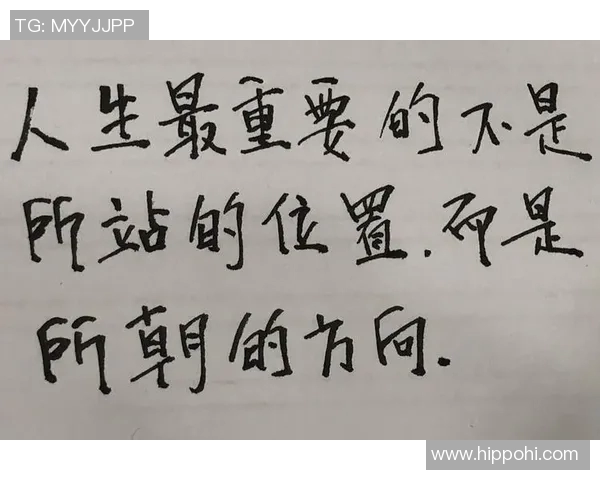 TG: MYYJJPP
人生最重要的不是
所站的位置.而是
所朝的方向.
www.hippohi.com